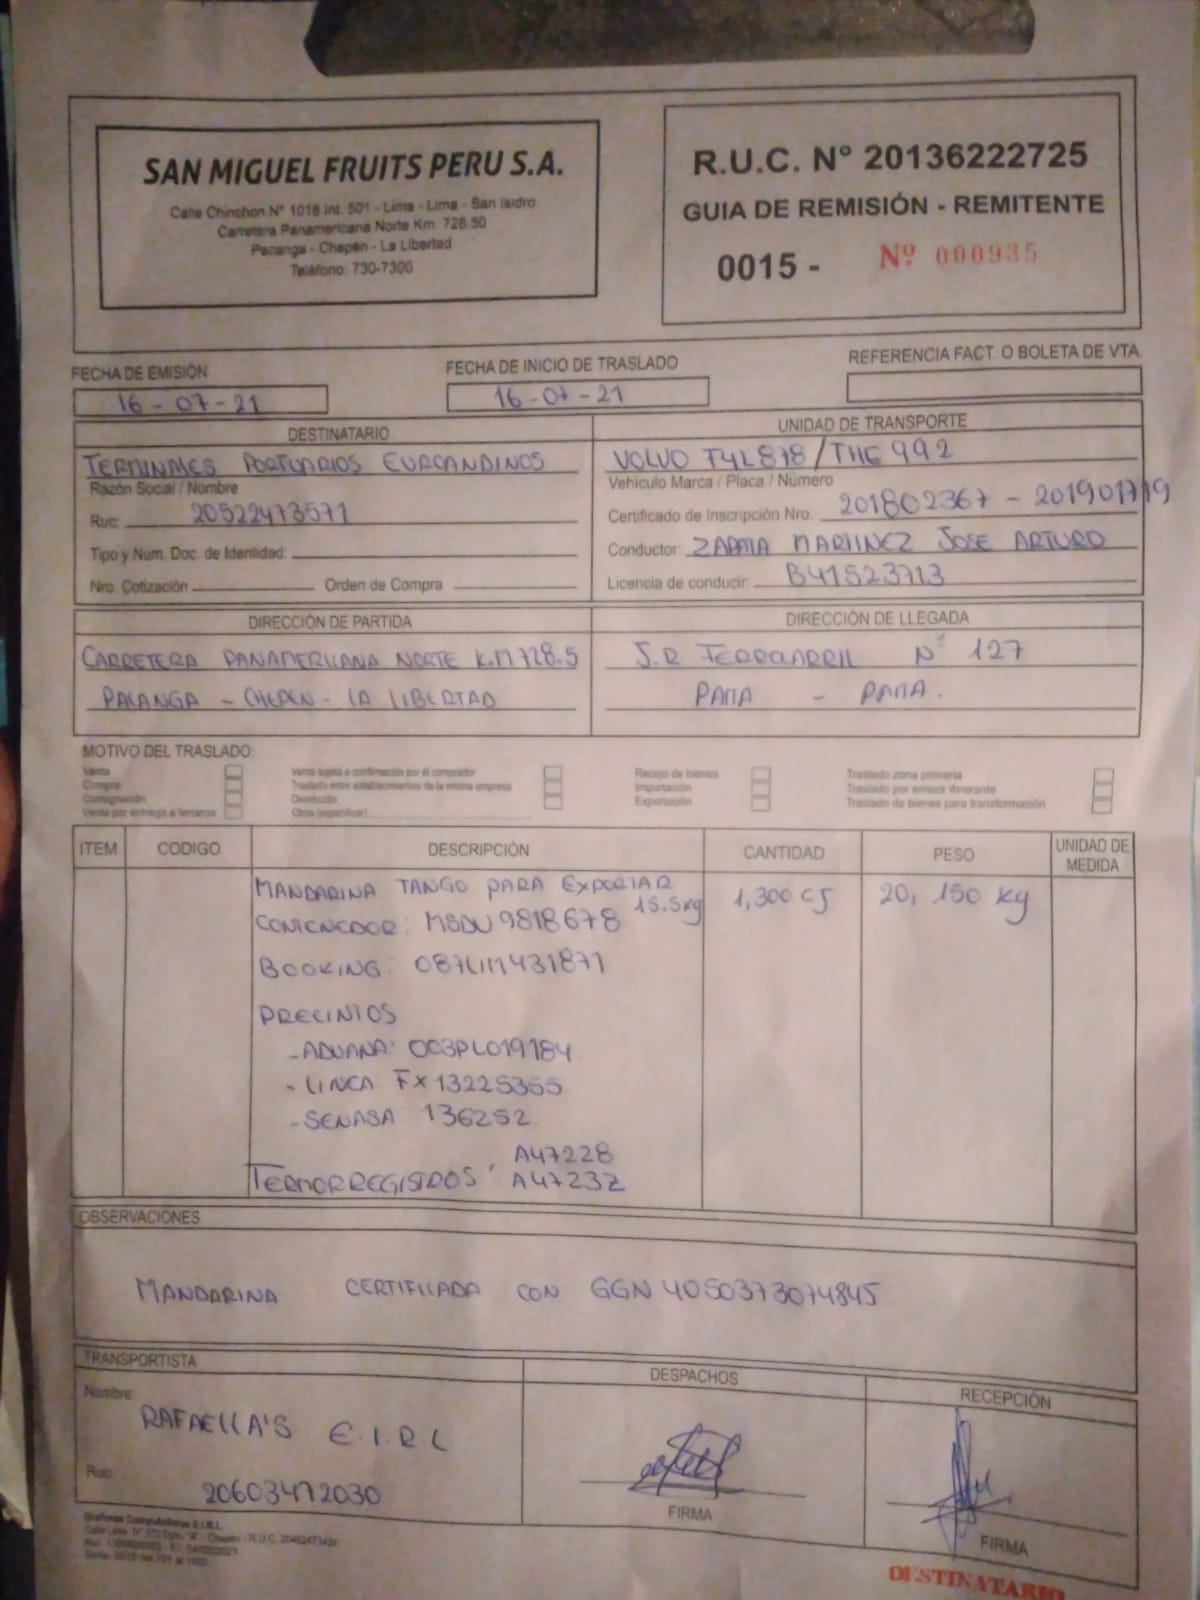 SAN MIGUEL FRUITS PERU S.A.
Calle Chinchon Nº 1018 Int. 501 - Lima - Lima - San Isidro
Carretera Panamericana Norte Km. 728.50
Pacanga - Chepén - La Libertad
Teléfono: 730-7300
R.U.C. N° 20136222725
GUIA DE REMISIÓN - REMITENTE
0015 - Nº 000935
FECHA DE EMISIÓN
16-07-21
FECHA DE INICIO DE TRASLADO
16-07-21
REFERENCIA FACT. O BOLETA DE VTA.
DESTINATARIO
TERMINALES PORTUARIOS EUROANDINOS
Razón Social / Nombre
Ruc: 20522473571
Tipo y Num. Doc. de Identidad:
Nro. Cotización Orden de Compra
UNIDAD DE TRANSPORTE
VOLVO T4L878/THG 992
Vehículo Marca / Placa / Número
Certificado de Inscripción Nro. 201802367 - 201901719
Conductor: ZAPATA MARTINEZ JOSE ARTURO
Licencia de conducir: B41523713
DIRECCIÓN DE PARTIDA
CARRETERA PANAMERICANA NORTE K.M 728.5
PACANGA - CHEPEN - LA LIBERTAD
DIRECCIÓN DE LLEGADA
J.R FERROCARRIL Nº 127
PAITA - PAITA.
MOTIVO DEL TRASLADO:
Venta
Compra
Consignación
Venta por entrega a terceros
Venta sujeta a confirmación por el comprador
Traslado entre establecimientos de la misma empresa
Devolución
Otros (especificar)
Recojo de bienes
Importación
Exportación
Traslado zona primaria
Traslado por emisor itinerante
Traslado de bienes para transformación
ITEM CODIGO DESCRIPCIÓN CANTIDAD PESO UNIDAD DE MEDIDA
MANDARINA TANGO PARA EXPORTAR 15.5kg 1,300 CJ 20,150 kg
CONTENEDOR: MSDU 9818678
BOOKING: 087LIM431871
PRECINTOS
- ADUANA: 003PL019184
- LINEA FX13225355
- SENASA 136252
TERMORREGISTROS: A47228
A47232
OBSERVACIONES
MANDARINA CERTIFICADA CON GGN 4050373074845
TRANSPORTISTA
Nombre: RAFAELLA'S E.I.R.L
Ruc: 20603472030
DESPACHOS
FIRMA
RECEPCIÓN
FIRMA
DESTINATARIO